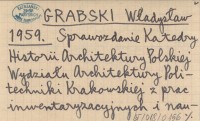 GRABSKI Władysław
1959. Sprawozdanie Katedry
Historii Architektury Polskiej
Wydziału Architektury Poli-
techniki Krakowskiej z prac
inwentaryzacyjnych i nau-